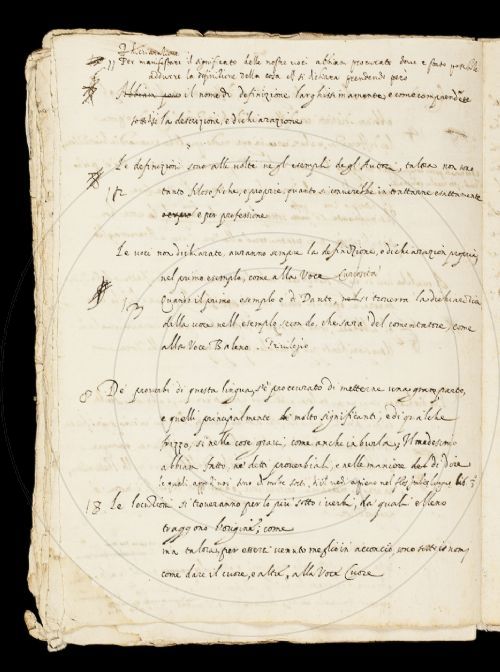 Dichiarazione
11 Per manifestare il significato delle nostre voci abbiam procurato dove è stato possibile
addurre la difinizione della cosa, che si dichiara prendendo però
Abbiam però il nome di definizione larghissimamente, e come comprendente
sotto di se la descrizione, e dichiarazione
Le definizioni sono alle volte negli esempli degli Autori, talora non sono
12 tanto filosofiche, e proprie, quanto si converrebbe in trattarne esattamente
ovvero e per professione
Le voci non dichiarate, avranno sempre la definizione, o dichiarazion propria
nel primo esemplo, come alla Voce Curiosità
13 Quando il primo esemplo è di Dante, si troverrà la dichiarazione
della voce nell'esemplo secondo, che sarà del comentatore, come
alla Voce Baleno. Privilegio
8 De' proverbi di questa lingua, s'è proccurato di metterne una gran parte,
e quelli principalmente di molto significanti, e di qualche
frizzo, sì nelle cose gravi, come anche in burla, Il medesimo
abbiam fatto, ne' detti proverbiali, e nelle maniere del di dire
le quali appo noi sono di molte sorti,
18 Le locuzioni si troveranno per lo più sotto i verbi, da' quali elleno
traggono l'origine; come
ma talora, per essere venuto meglio in acconcio, sono sotto i nomi,
come dare il cuore, e altri, alla Voce Cuore